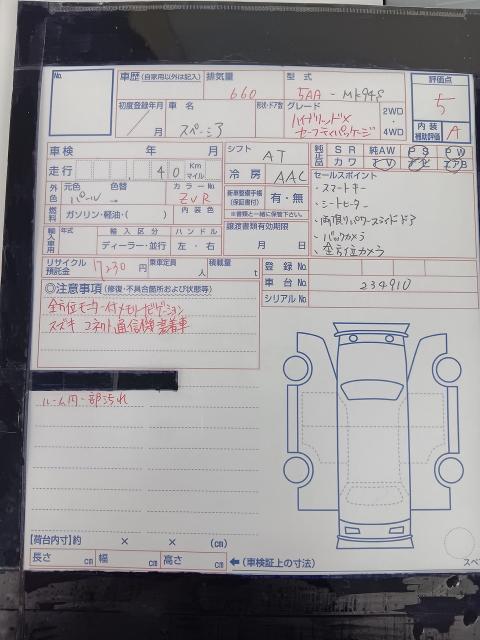 No.
車歴 (自家用以外は記入)
排気量
型式
評価点
660
5AA - MK94S
5
初度登録年月
車名
形状・ドア数
グレード
2WD
4WD
内装
補助評価
A
／ 月
スペーシア
ハイブリッドX
セーフティパッケージ
車検 年 月
シフト
AT
純正品
SR
純AW
PS
PW
カワ
TV
エアB
走行
40
Km
マイル
冷房
AAC
セールスポイント
・スマートキー
・シートヒーター
・両側パワースライドドア
・バックカメラ
・全方位カメラ
外色
元色
色替
カラーNo.
パール →
ZVR
新車整備手帳
(保証書付)
有・無
※書類と一緒に保管下さい。
燃料
ガソリン・軽油・( )
内装色
譲渡書類有効期限
月 日
輸入車用
年式
輸入区分
ハンドル
ディーラー・並行
左・右
リサイクル
預託金
17230 円
乗車定員
人
積載量
t
登録No.
車台No.
234910
シリアルNo.
◎注意事項 (修復・不具合箇所および状態等)
全方位モニター付メモリーナビゲーション
スズキ コネクト通信機装着車
ルーム内一部汚れ
【荷台内寸】約 × × (cm)
長さ cm 幅 cm 高さ cm
←(車検証上の寸法)
スペ